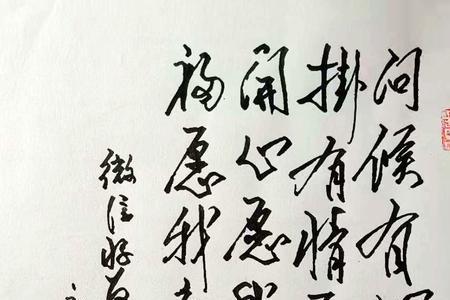 问候有
掛有情
开心愿我
福愿我
微信好